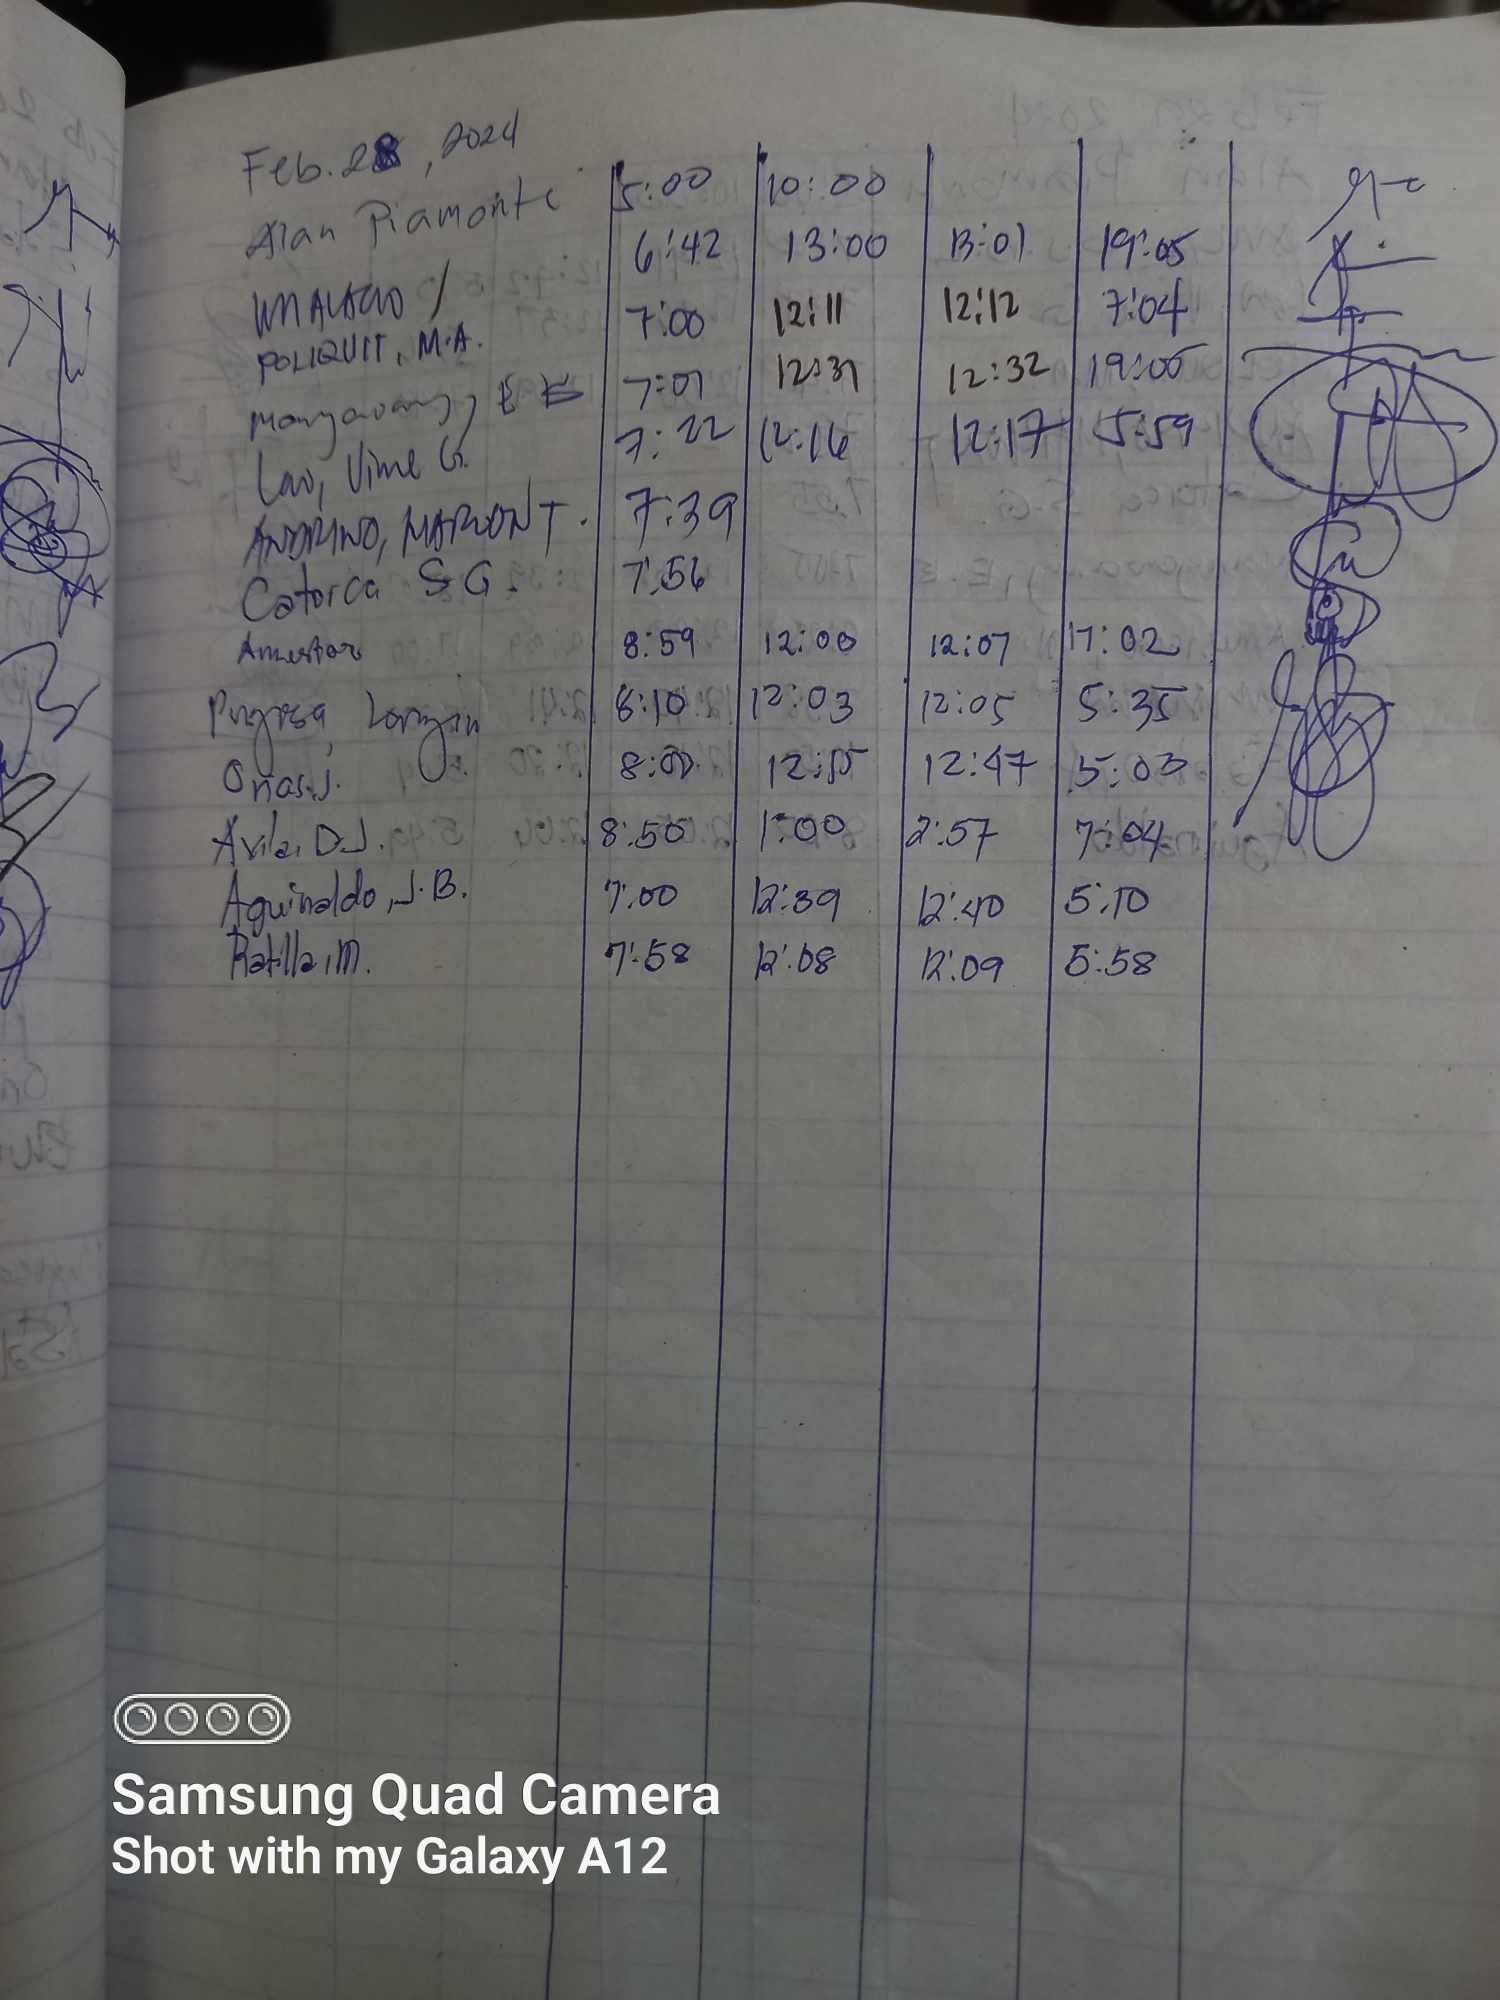 Feb. 28, 2024
Alan Piamonte 5:00 10:00
6:42 13:00 13:01 19:05
POLIQUIT, M.A. 7:00 12:11 12:12 7:04
7:01 12:31 12:32 19:05
Lao, Vime G. 7:22 12:16 12:17 5:59
ANDRINO, MARVON T. 7:39
Catorca S.G. 7:56
8:59 12:00 12:07 17:02
8:10 12:03 12:05 5:35
Onas.J. 8:00 12:15 12:47 5:03
Avila, D.J. 8:50 1:00 2:57 7:04
Aguinaldo, J.B. 7:00 12:39 12:40 5:10
Ratilla, M. 7:58 12:08 12:09 5:58
Samsung Quad Camera
Shot with my Galaxy A12